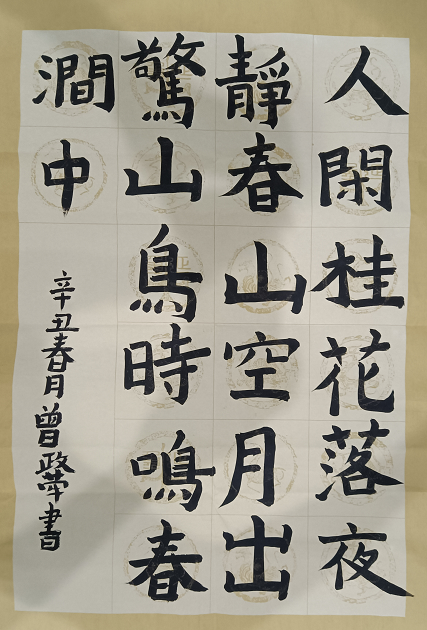 人閑桂花落夜
靜春山空月出
驚山鳥時鳴春
澗中
辛丑春月曾政學書